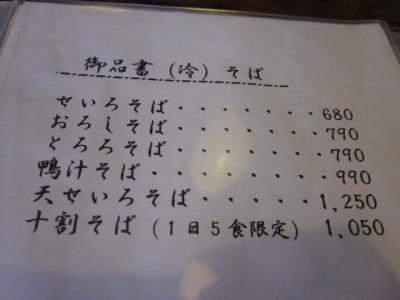 御品書（冷）そば
せいろそば・・・・・・・680
おろしそば・・・・・・・790
とろろそば・・・・・・・790
鴨汁そば・・・・・・・990
天せいろそば・・・・・・1,250
十割そば（1日5食限定）1,050